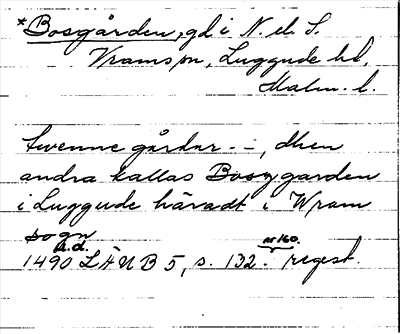 *Bosgården, gd i N. el. S.
Vramsn, Luggude hd,
Malm. l.
twenne gårdar - -, dhen
andra kallas Bosgarden
i Luggude häradt i Wram
sogn
u.d. nr 160.
1490 LÄUB 5, s. 132. regest.